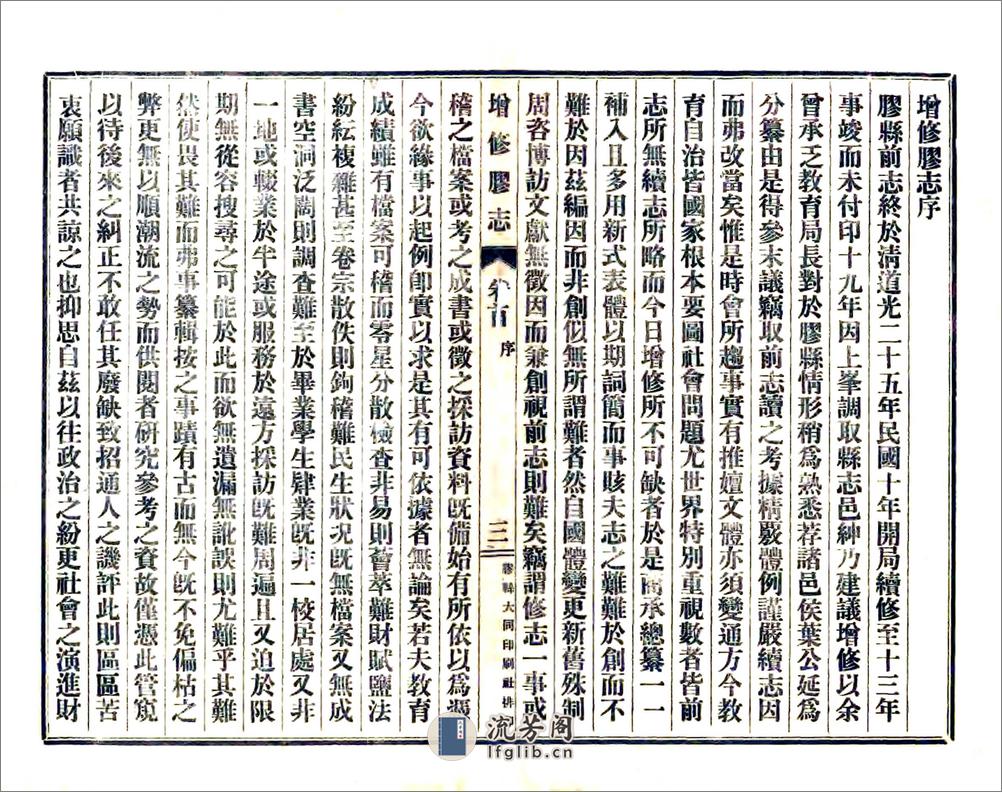 增修膠志序
膠縣前志終於清道光二十五年民國十年開局續修至十三年
事竣而未付印十九年因上峯調取縣志邑紳乃建議增修以余
曾承乏教育局長對於膠縣情形稍爲熟悉荐諸邑侯葉公延爲
分纂由是得參末議竊取前志讀之考據精覈體例謹嚴續志因
而弗改當矣惟是時會所趨事實有推嬗文體亦須變通方今教
育自治皆國家根本要圖社會問題尤世界特別重視數者皆前
志所無續志所略而今日增修所不可缺者於是商承總纂一一
補入且多用新式表體以期詞簡而事賅夫志之難難於創而不
難於因茲編因而非創似無所謂難者然自國體變更新舊殊制
周咨博訪文獻無徵因而兼創視前志則難矣竊謂修志一事或
增修膠志
卷首
序
三
膠縣大同印刷社排
稽之檔案或考之成書或徵之採訪資料旣備始有所依以爲源
今欲緣事以起例卽實以求是其有可依據者無論矣若夫教育
成績雖有檔案可稽而零星分散檢查非易則薈萃難財賦鹽法
紛紜複雜甚至卷宗散佚則鉤稽難民生狀況旣無檔案又無成
書空洞泛闊則調查難至於畢業學生肄業旣非一校居處又非
一地或輟業於半途或服務於遠方採訪旣難周遍且又迫於限
期無從容搜尋之可能於此而欲無遺漏無訛誤則尤難乎其難
然使畏其難而弗事纂輯按之事蹟有古而無今旣不免偏枯之
弊更無以順潮流之勢而供閱者研究參考之資故僅憑此管窺
以待後來之糾正不敢任其廢缺致招通人之譏評此則區區苦
衷願識者共諒之也抑思自茲以往政治之紛更社會之演進財
流芳阁
lfglib.cn